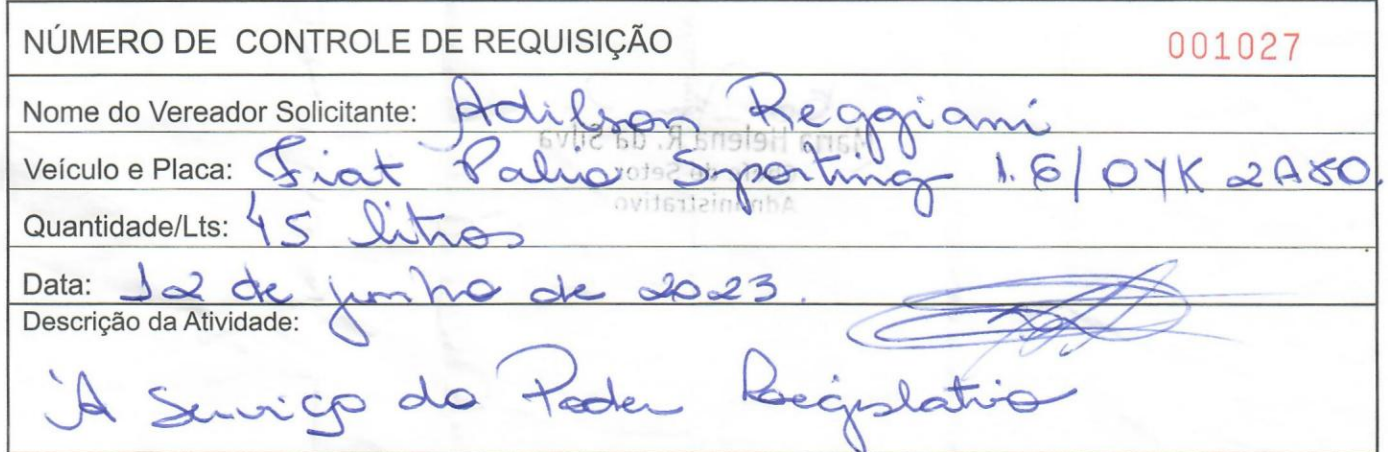 NÚMERO DE CONTROLE DE REQUISIÇÃO 001027
Nome do Vereador Solicitante: Adilson Reggiani
Maria Helena R. da Silva
Veículo e Placa: Fiat Palio Sporting 1.6/OYK 2A80.
Setor
Administrativo
Quantidade/Lts: 45 litros
Data: 12 de junho de 2023.
Descrição da Atividade:
À Serviço do Poder Legislativo